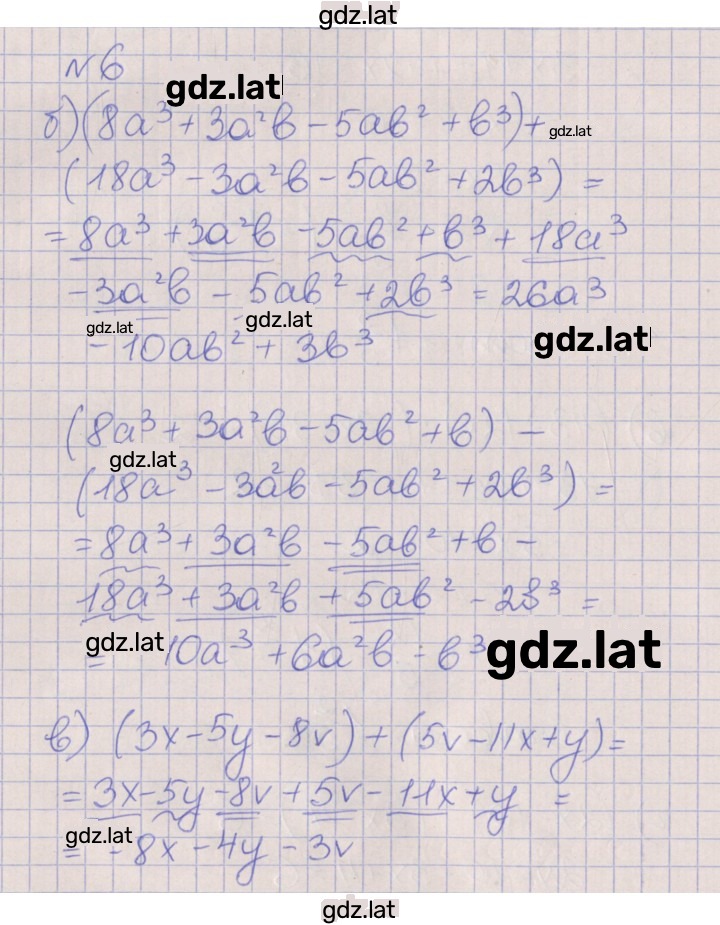 gdz.lat
№6
gdz.lat
б) (8a³ + 3a²b - 5ab² + b³) +
gdz.lat
(18a³ - 3a²b - 5ab² + 2b³) =
= 8a³ + 3a²b - 5ab² + b³ + 18a³
- 3a²b - 5ab² + 2b³ = 26a³
gdz.lat
gdz.lat
gdz.lat
- 10ab² + 3b³
(8a³ + 3a²b - 5ab² + b) -
gdz.lat
(18a³ - 3a²b - 5ab² + 2b³) =
= 8a³ + 3a²b - 5ab² + b -
18a³ + 3a²b + 5ab² - 2b³ =
gdz.lat
= - 10a³ + 6a²b - b³
gdz.lat
в) (3x - 5y - 8v) + (5v - 11x + y) =
= 3x - 5y - 8v + 5v - 11x + y =
gdz.lat
= - 8x - 4y - 3v
gdz.lat